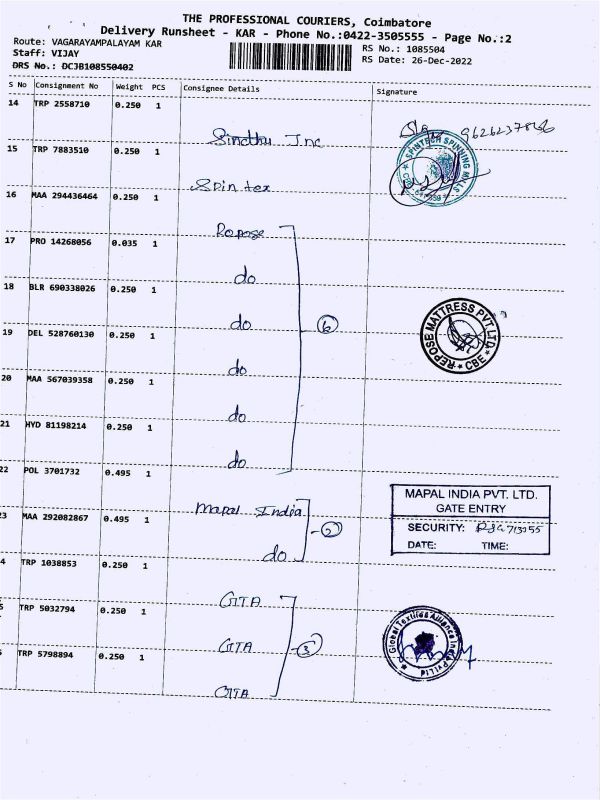 THE PROFESSIONAL COURIERS, Coimbatore
Delivery Runsheet - KAR - Phone No.:0422-3505555 - Page No.:2
Route: VAGARAYAMPALAYAM KAR
RS No.: 1085504
Staff: VIJAY
RS Date: 26-Dec-2022
DRS No.: DCJB108550402
S No Consignment No Weight PCS Consignee Details Signature
14 TRP 2558710 0.250 1
Sindhu Inc
9626237866
15 TRP 7883510 0.250 1
Spintex
SPINTECH SPINNING MILLS
16 MAA 294436464 0.250 1
Repose
17 PRO 14268056 0.035 1
do
18 BLR 690338026 0.250 1
do
6
REPOSE MATTRESS PVT. LTD. * CBE *
19 DEL 528760130 0.250 1
do
20 MAA 567039358 0.250 1
do
21 HYD 81198214 0.250 1
do
22 POL 3701732 0.495 1
Mapal India
MAPAL INDIA PVT. LTD.
GATE ENTRY
23 MAA 292082867 0.495 1
2
SECURITY:
do
DATE: TIME:
4 TRP 1038853 0.250 1
GTA
TRP 5032794 0.250 1
GTA
3
Global Textiles Alliance India Pvt Ltd
TRP 5798894 0.250 1
GTA